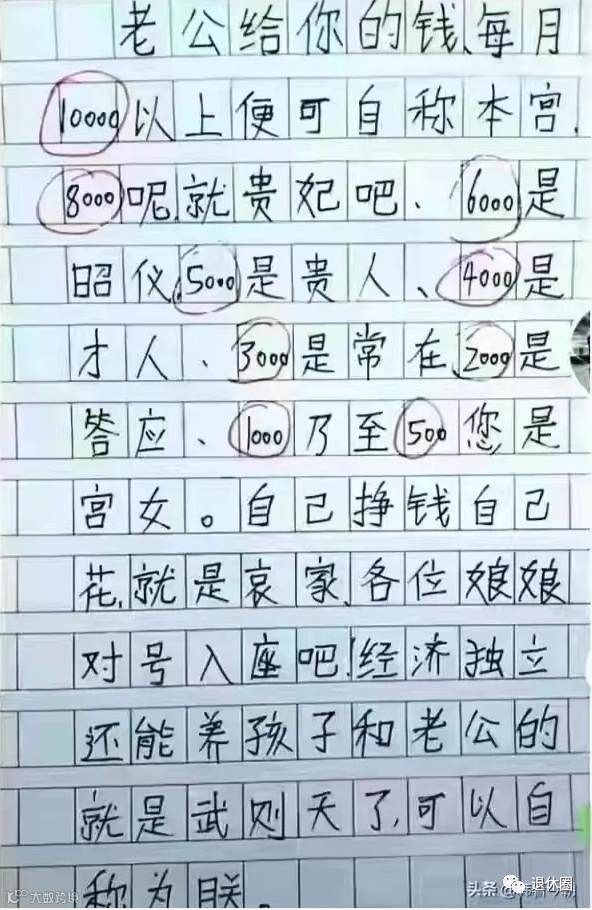 老公给你的钱、每月
10000以上便可自称本宫.
8000呢就贵妃吧、6000是
昭仪.5000是贵人、4000是
才人、3000是常在、2000是
答应、1000乃至500您是
宫女。自己挣钱自己
花,就是哀家,各位娘娘
对号入座吧!经济独立
还能养孩子和老公的
就是武则天了,可以自
称为朕。
大数跨境
头条
退休圈